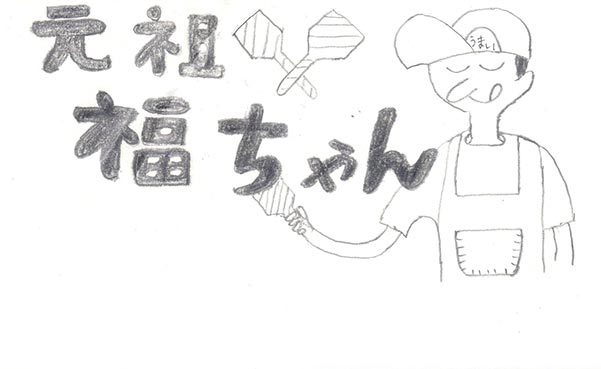 元祖
福ちゃん
うまい